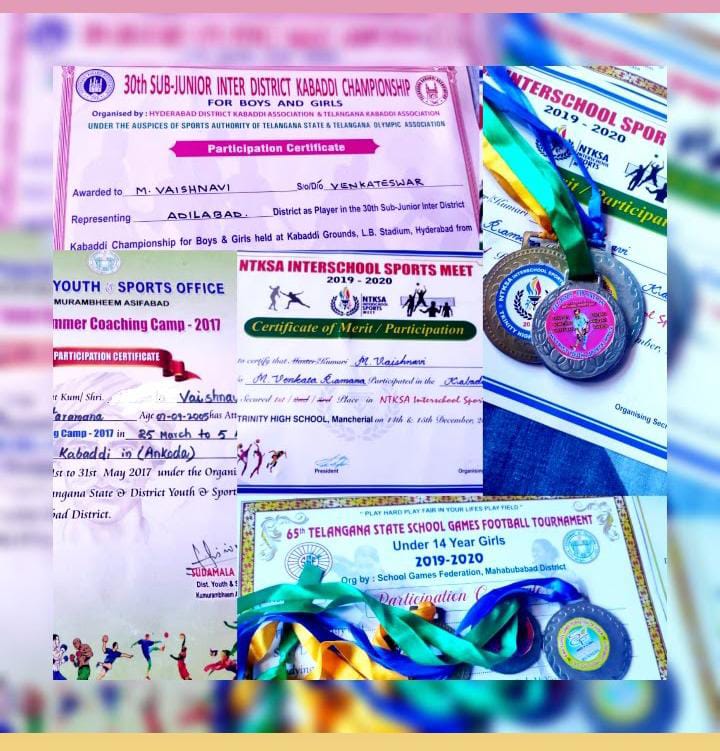 30th SUB-JUNIOR INTER DISTRICT KABADDI CHAMPIONSHIP
FOR BOYS AND GIRLS
Organised by : HYDERABAD DISTRICT KABADDI ASSOCIATION & TELANGANA KABADDI ASSOCIATION
UNDER THE AUSPICES OF SPORTS AUTHORITY OF TELANGANA STATE & TELANGANA OLYMPIC ASSOCIATION
Participation Certificate
Awarded to M. VAISHNAVI S/o/D/o VENKATESWAR
Representing ADILABAD. District as Player in the 30th Sub-Junior Inter District
Kabaddi Championship for Boys & Girls held at Kabaddi Grounds, L.B. Stadium, Hyderabad from
INTERSCHOOL SPOR
2019 - 2020
NTKSA
Organising Secr
YOUTH & SPORTS OFFICE
MURAMBHEEM ASIFABAD
mmer Coaching Camp - 2017
PARTICIPATION CERTIFICATE
Kum/ Shri. Vaishnav
aramana Age 07-09-2005 has Att
g Camp - 2017 in 25 March to 5
Kabaddi in (Ankoda)
1st to 31st May 2017 under the Organi
ngana State & District Youth & Sport
bad District.
SUDAMALA
Dist. Youth & S
Kumurambheem A
NTKSA INTERSCHOOL SPORTS MEET
2019 - 2020
NTKSA
INTERSCHOOL
SPORTS
MEET
Certificate of Merit / Participation
to certify that Master/Kumari M. Vaishnavi
M. Venkata Ramana Participated in the Kabad
Secured 1st / 2nd / 3rd Place in NTKSA Interschool Spor
TRINITY HIGH SCHOOL, Mancherial on 14th & 15th December, 2
President
Organis
"PLAY HARD PLAY FAIR IN YOUR LIFES PLAY FIELD."
65th TELANGANA STATE SCHOOL GAMES FOOTBALL TOURNAMENT
Under 14 Year Girls
2019-2020
Org by : School Games Federation, Mahabubabad District
Participation C